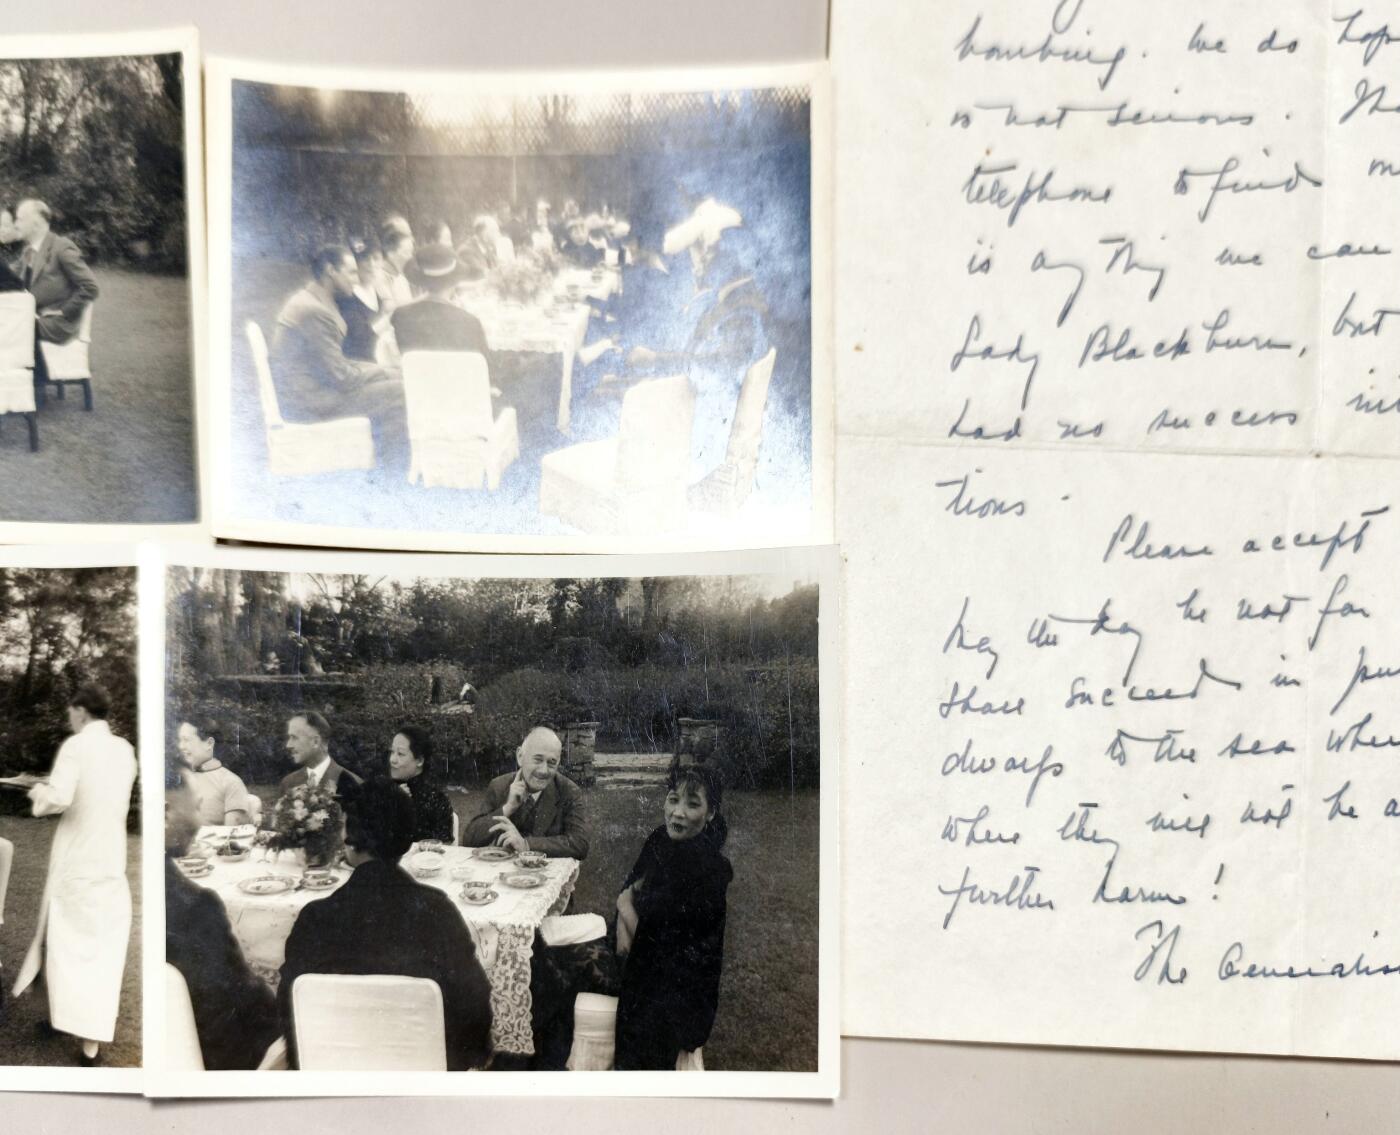 bombing. We do hop
is not serious. The
telephone to find
is any thing we can
Lady Blackburn, but
had no success
tions.
Please accept
May the day be not far
shall succeed in
dwarfs to the sea
where they will not be a
further harm!
The Generaliss